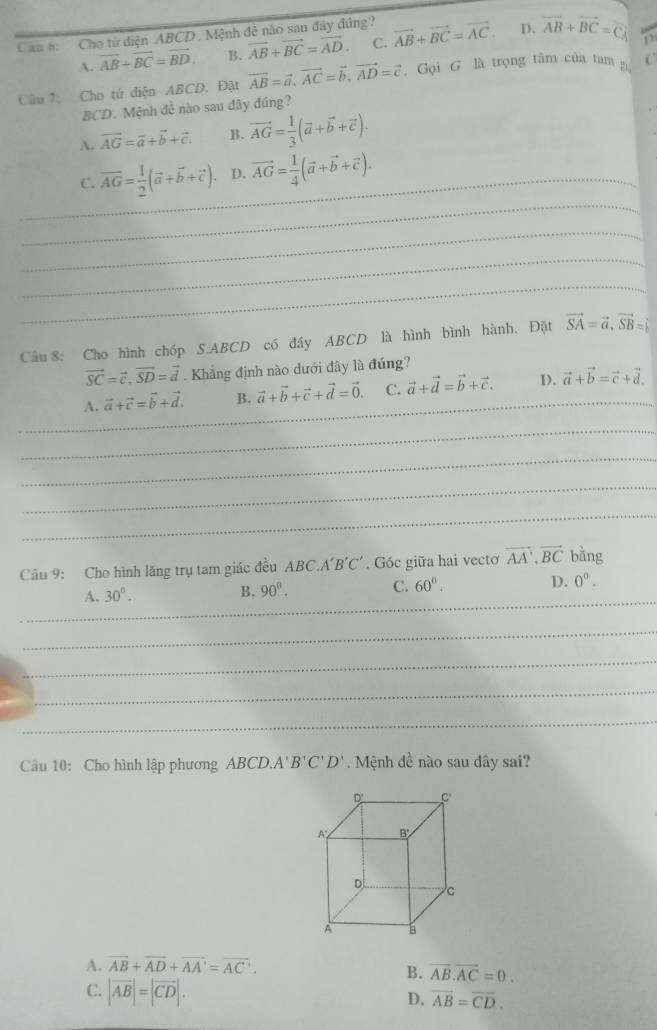 Câu 6: Cho tứ diện ABCD. Mệnh đề nào sau đây đúng?
A. $\overrightarrow{AB}+\overrightarrow{BC}=\overrightarrow{BD}$. B. $\overrightarrow{AB}+\overrightarrow{BC}=\overrightarrow{AD}$. C. $\overrightarrow{AB}+\overrightarrow{BC}=\overrightarrow{AC}$. D. $\overrightarrow{AB}+\overrightarrow{BC}=\overrightarrow{CA}$
Câu 7: Cho tứ diện ABCD. Đặt $\overrightarrow{AB}=\vec{a}, \overrightarrow{AC}=\vec{b}, \overrightarrow{AD}=\vec{c}$. Gọi G là trọng tâm của tam
BCD. Mệnh đề nào sau đây đúng?
A. $\overrightarrow{AG}=\vec{a}+\vec{b}+\vec{c}$. B. $\overrightarrow{AG}=\frac{1}{3}(\vec{a}+\vec{b}+\vec{c})$.
C. $\overrightarrow{AG}=\frac{1}{2}(\vec{a}+\vec{b}+\vec{c})$. D. $\overrightarrow{AG}=\frac{1}{4}(\vec{a}+\vec{b}+\vec{c})$.
Câu 8: Cho hình chóp S.ABCD có đáy ABCD là hình bình hành. Đặt $\overrightarrow{SA}=\vec{a}, \overrightarrow{SB}=$
$\overrightarrow{SC}=\vec{c}, \overrightarrow{SD}=\vec{d}$. Khẳng định nào dưới đây là đúng?
A. $\vec{a}+\vec{c}=\vec{b}+\vec{d}$. B. $\vec{a}+\vec{b}+\vec{c}+\vec{d}=\vec{0}$. C. $\vec{a}+\vec{d}=\vec{b}+\vec{c}$. D. $\vec{a}+\vec{b}=\vec{c}+\vec{d}$.
Câu 9: Cho hình lăng trụ tam giác đều ABC.A'B'C'. Góc giữa hai vectơ $\overrightarrow{AA'}, \overrightarrow{BC}$ bằng
A. $30^0$. B. $90^0$. C. $60^0$. D. $0^0$.
Câu 10: Cho hình lập phương ABCD.A'B'C'D'. Mệnh đề nào sau đây sai?
D' C'
A' B'
D C
A B
A. $\overrightarrow{AB}+\overrightarrow{AD}+\overrightarrow{AA'}=\overrightarrow{AC'}$. B. $\overrightarrow{AB}.\overrightarrow{AC}=0$.
C. $|\overrightarrow{AB}|=|\overrightarrow{CD}|$. D. $\overrightarrow{AB}=\overrightarrow{CD}$.